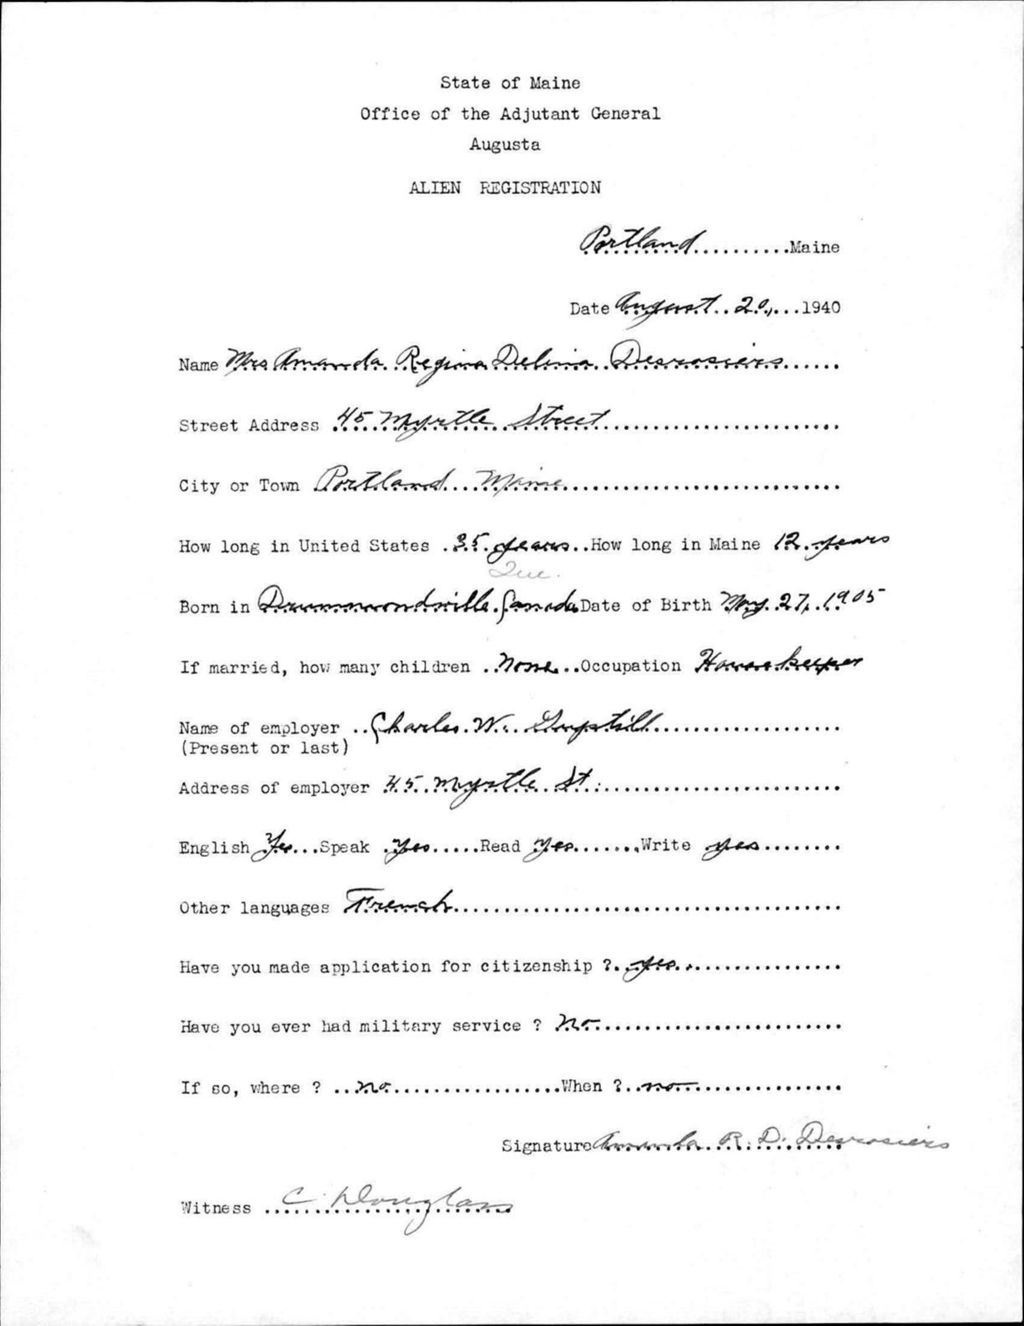 State of Maine
Office of the Adjutant General
Augusta
ALIEN REGISTRATION
Portland..........Maine
Date August 20,...1940
Name Mrs Amanda Regina Delina Desrosiers......
Street Address 45 Myrtle Street........................
City or Town Portland...Maine............................
How long in United States .35 years..How long in Maine 12 years
Que.
Born in Drummondville, Canada Date of Birth May 27, 1905
If married, how many children ..None..Occupation Housekeeper
Name of employer ..Charles W. Guptill..................
(Present or last)
Address of employer 45 Myrtle St.........................
English Yes...Speak .Yes.....Read Yes.......Write yes........
Other languages French.......................................
Have you made application for citizenship ?..yes................
Have you ever had military service ? No.........................
If so, where ? ..no.................When ?..no................
Signature Amanda R. D. Desrosiers
Witness ..C. Douglass